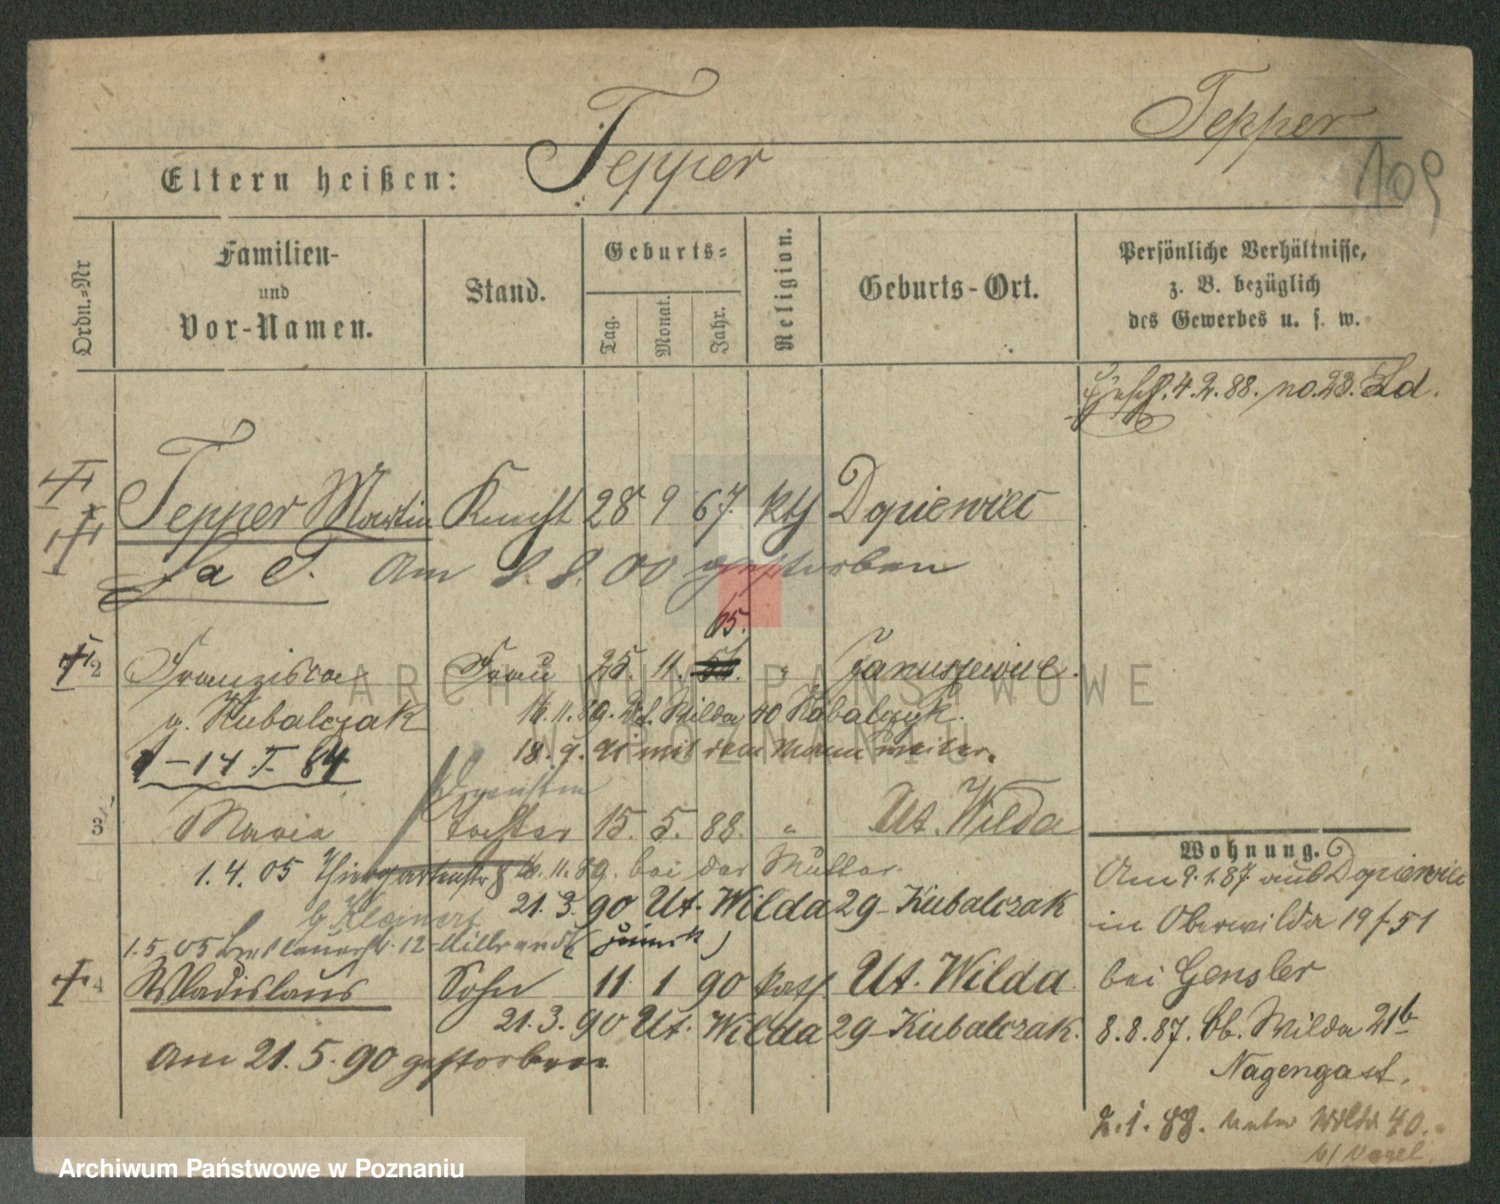 Tepper
Tepper
109
Eltern heißen:
Ordn.-Nr
Familien-
und
Vor-Namen.
Stand.
Geburts-
Tag.
Monat.
Jahr.
Religion.
Geburts-Ort.
Persönliche Verhältnisse,
z. B. bezüglich
des Gewerbes u. s. w.
4.2.88. no. 23.
Tepper Martin Knecht 28 9 67. kth Dopiewiec
Am 8. 8. 00 gestorben
65.
2 Franziska Frau 25. 11. "
g. Kubalczak 16.11.89. Ut. Wilda 40 Kobalczyk.
18. 9. mit dem Mann weiter.
Dienstm
3 Maria Tochter 15. 5. 88. " Ut. Wilda
1.4.05 Thiergartenstr 8 16.11.89. bei der Mutter.
b/ Kleinert 21.3.90 Ut. Wilda 29 Kubalczak
1.5.05 12 Hilbrandt
4 Wladislaus Sohn 11. 1 90 kath. Ut. Wilda
21.3.90 Ut. Wilda 29 Kubalczak.
Am 21.5.90 gestorben
Wohnung.
Am 9.1.87 aus Dopiewiec
in Oberwilda 19/51
bei Gensler
8.8.87. Ob. Wilda 21b
Nagengast.
2.1.88. Unter Wilda 40.
b/ Vogel.
ARCHIWUM PAŃSTWOWE
W POZNANIU
Archiwum Państwowe w Poznaniu